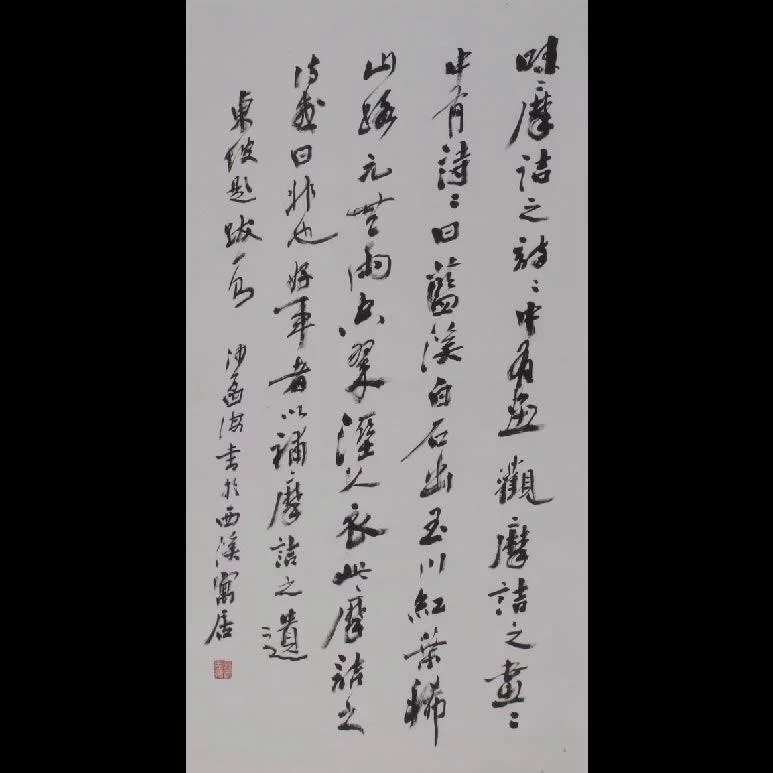 味摩詰之詩〻中有畫觀摩詰之畫〻
中有詩〻曰藍溪白石出玉川紅葉稀
山路元無雨空翠溼人衣此摩詰之
詩或曰非也好事者以補摩詰之遺
東坡題跋一則
沙孟海書於西溪寓居